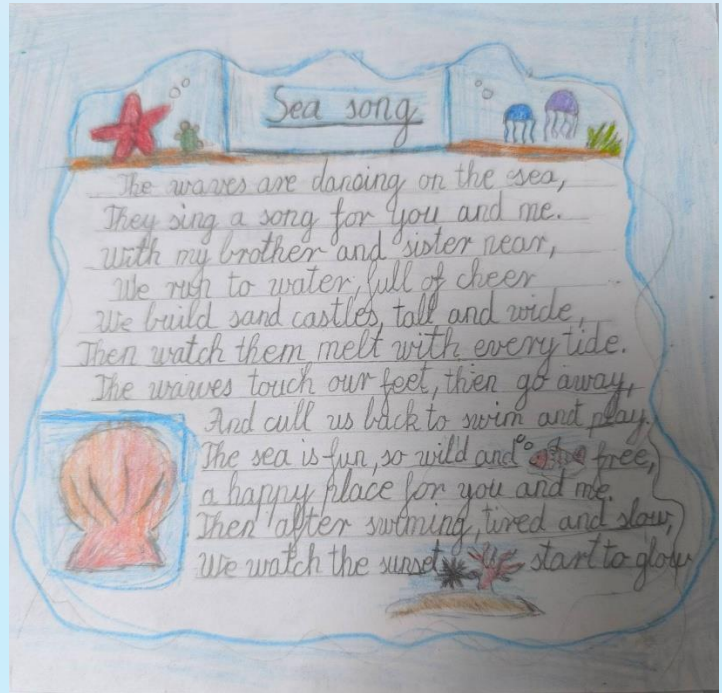 Sea song
The waves are dancing on the sea,
They sing a song for you and me.
With my brother and sister near,
We run to water, full of cheer
We build sand castles, tall and wide,
Then watch them melt with every tide.
The waves touch our feet, then go away,
And cull us back to swim and play.
The sea is fun, so wild and free,
a happy place for you and me.
Then after swiming, tired and slow,
We watch the sunset start to glow